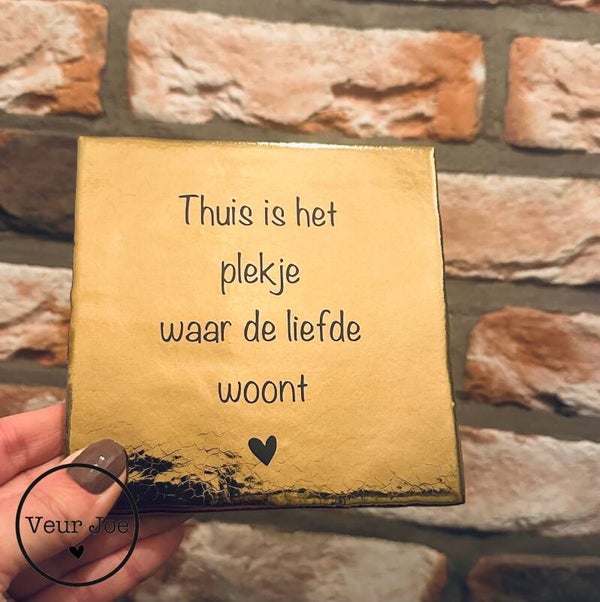 Thuis is het
plekje
waar de liefde
woont
Veur Joe